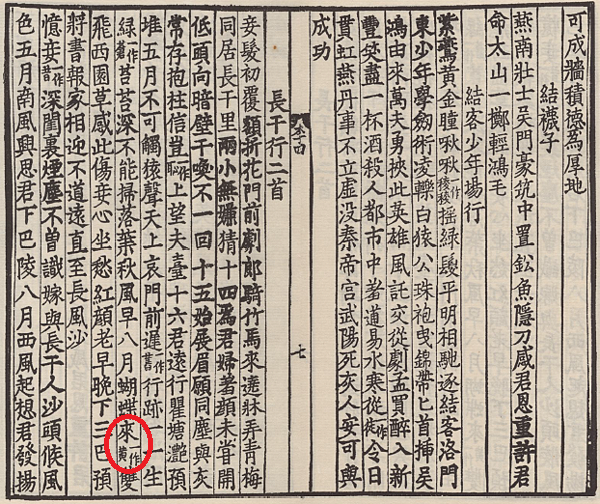 可成牆積德為厚地
結襪子
燕南壯士吳門豪筑中置鉛魚隱刀感君恩重許君
命太山一擲輕鴻毛
結客少年場行
紫鷰黃金瞳啾啾一作稜稜搖綠鬉平明相馳逐結客洛門
東少年學劒術凌轢白猿公珠袍曳錦帶匕首插吳
鴻由來萬夫勇挾此英雄風託交從劇孟買醉入新
豐笑盡一杯酒殺人都市中羞道易水寒從一作徒令日
貫虹燕丹事不立虛沒秦帝宮武陽死灰人安可與
成功
七
長干行二首
妾髮初覆額折花門前劇郎騎竹馬來遶牀弄青梅
同居長干里兩小無嫌猜十四為君婦羞顏未嘗開
低頭向暗壁千喚不一回十五始展眉願同塵與灰
常存抱柱信豈一作恥上望夫臺十六君遠行瞿塘灔預
堆五月不可觸猿聲天上哀門前遲一作舊行跡一一生
綠一作蒼苔苔深不能掃落葉秋風早八月蝴蝶來一作黃雙
飛西園草感此傷妾心坐愁紅顏老早晚下三巴預
將書報家相迎不道遠直至長風沙
憶妾一作昔深閨裏煙塵不曾識嫁與長干人沙頭候風
色五月南風興思君下巴陵八月西風起想君發揚